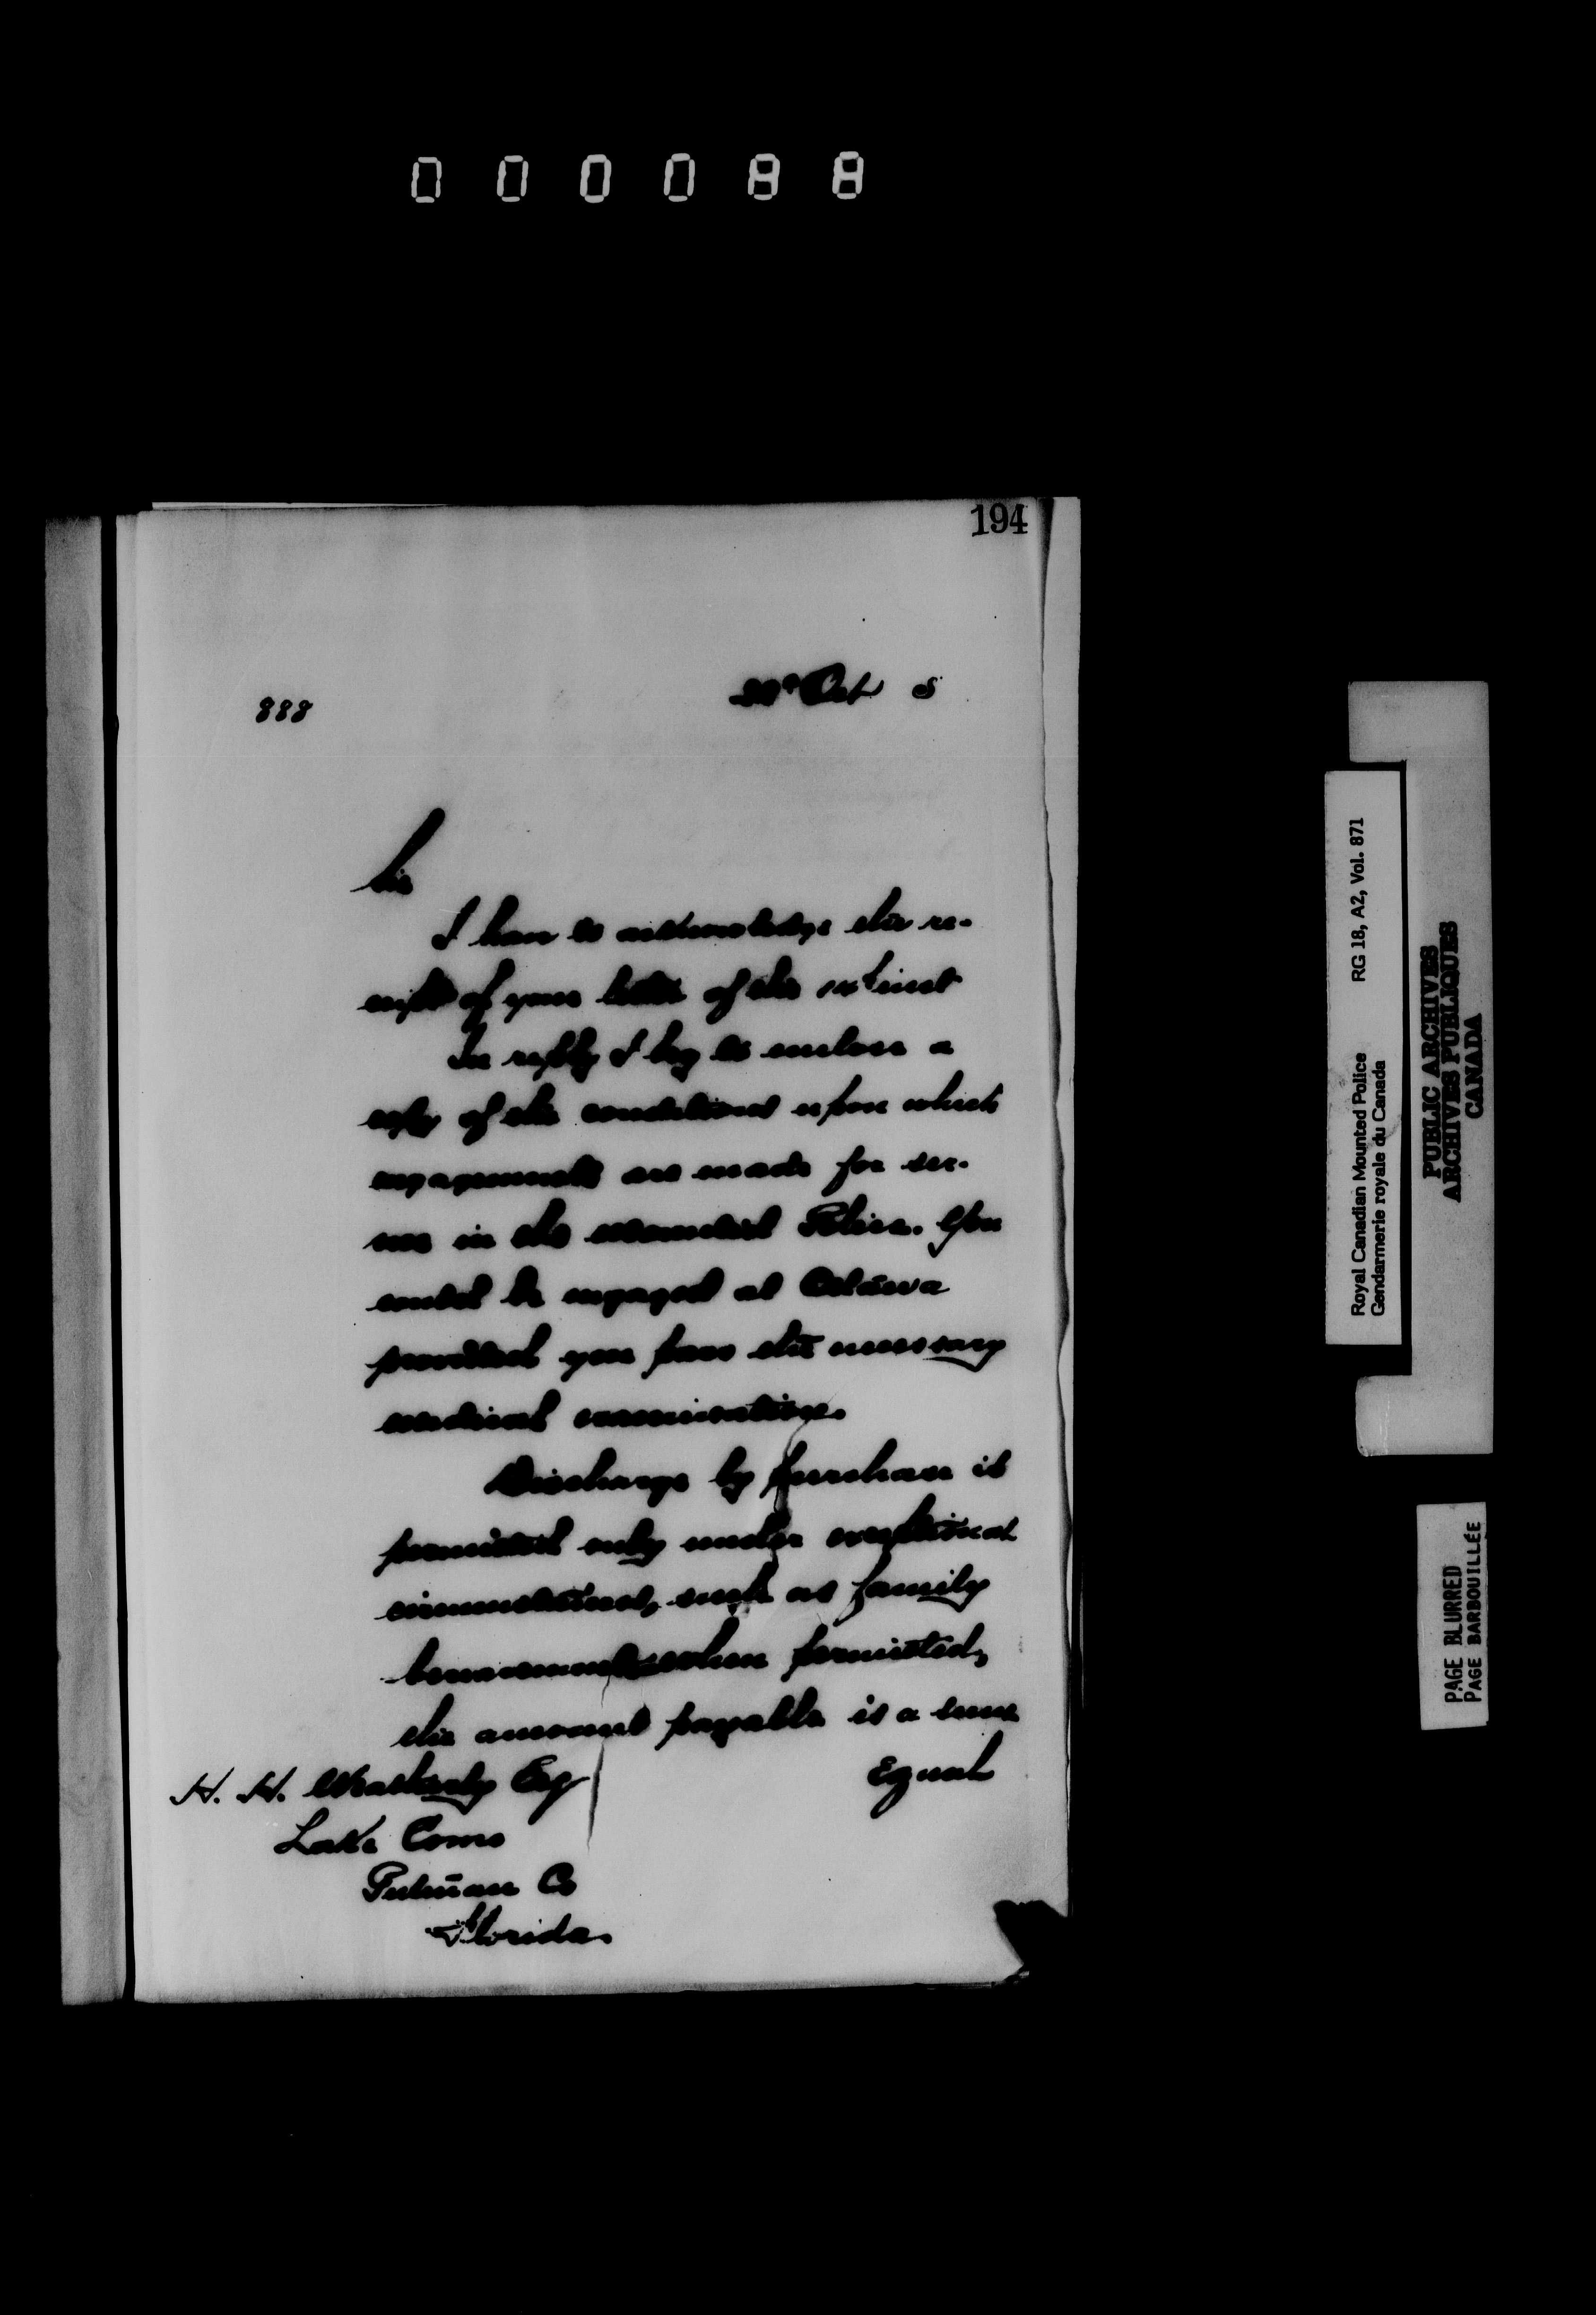 000088
194
888
Oct 5
Sir
I have to acknowledge the re-
ceipt of your letter of the inst
In reply I beg to enclose a
copy of the conditions upon which
engagements are made for ser-
vice in the Mounted Police. You
could be engaged at Ottawa
provided you pass the necessary
medical examination.
Discharge by purchase is
permitted only under exceptional
circumstances, such as family
bereavement when permitted,
the amount payable is a sum
Equal
H. H. Esq
Lake Como
Putnam Co
Florida.
Royal Canadian Mounted Police RG 18, A2, Vol. 871
Gendarmerie royale du Canada
PUBLIC ARCHIVES
ARCHIVES PUBLIQUES
CANADA
PAGE BLURRED
PAGE BARBOUILLÉE